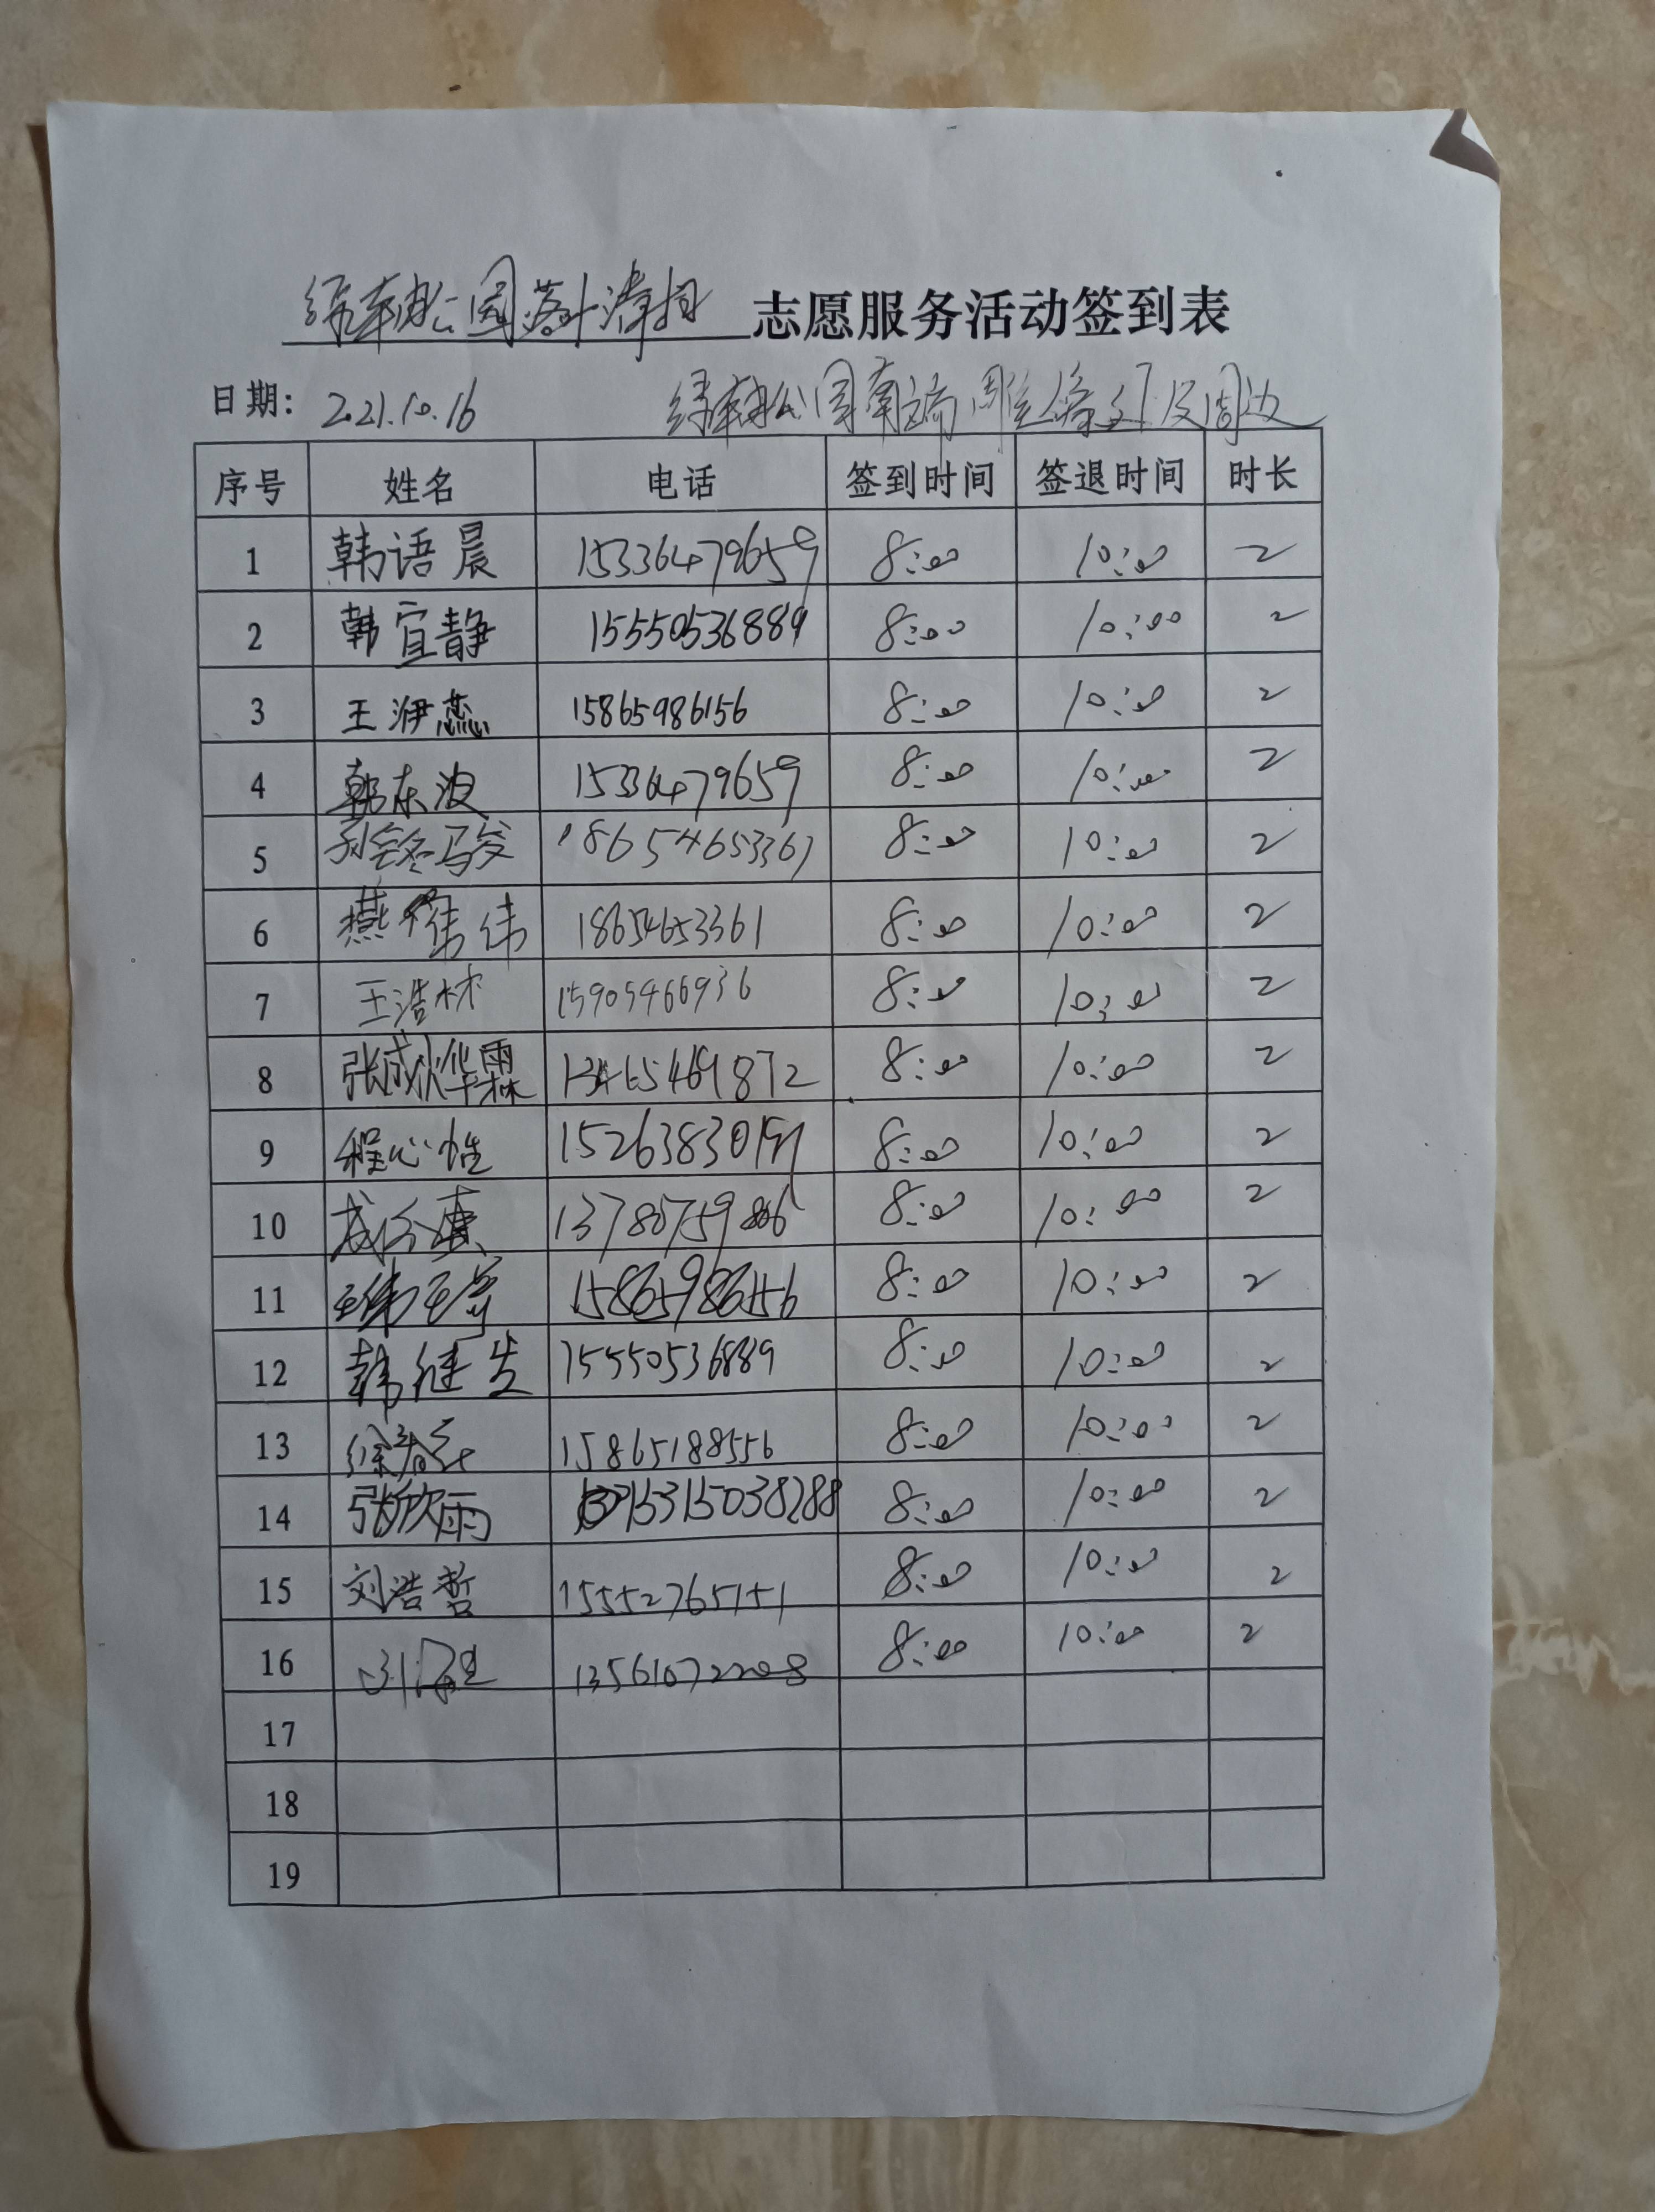 绿轴公园落叶清扫 志愿服务活动签到表
日期: 2021.10.16 绿轴公园南端 及周边
序号 姓名 电话 签到时间 签退时间 时长
1 韩语晨 15336479659 8:00 10:00 2
2 韩宜静 15550536889 8:00 10:00 2
3 王洢蕊 15865986156 8:00 10:00 2
4 韩东波 15336479659 8:00 10:00 2
5 18654653361 8:00 10:00 2
6 燕伟伟 18654653361 8:00 10:00 2
7 王浩林 15905466936 8:00 10:00 2
8 张成 华霖 13465469872 8:00 10:00 2
9 程心怡 8:00 10:00 2
10 8:00 10:00 2
11 15865986156 8:00 10:00 2
12 韩继发 15550536889 8:00 10:00 2
13 15865188556 8:00 10:00 2
14 张欣雨 15315038288 8:00 10:00 2
15 刘浩哲 15552765151 8:00 10:00 2
16 13561072208 8:00 10:00 2
17
18
19